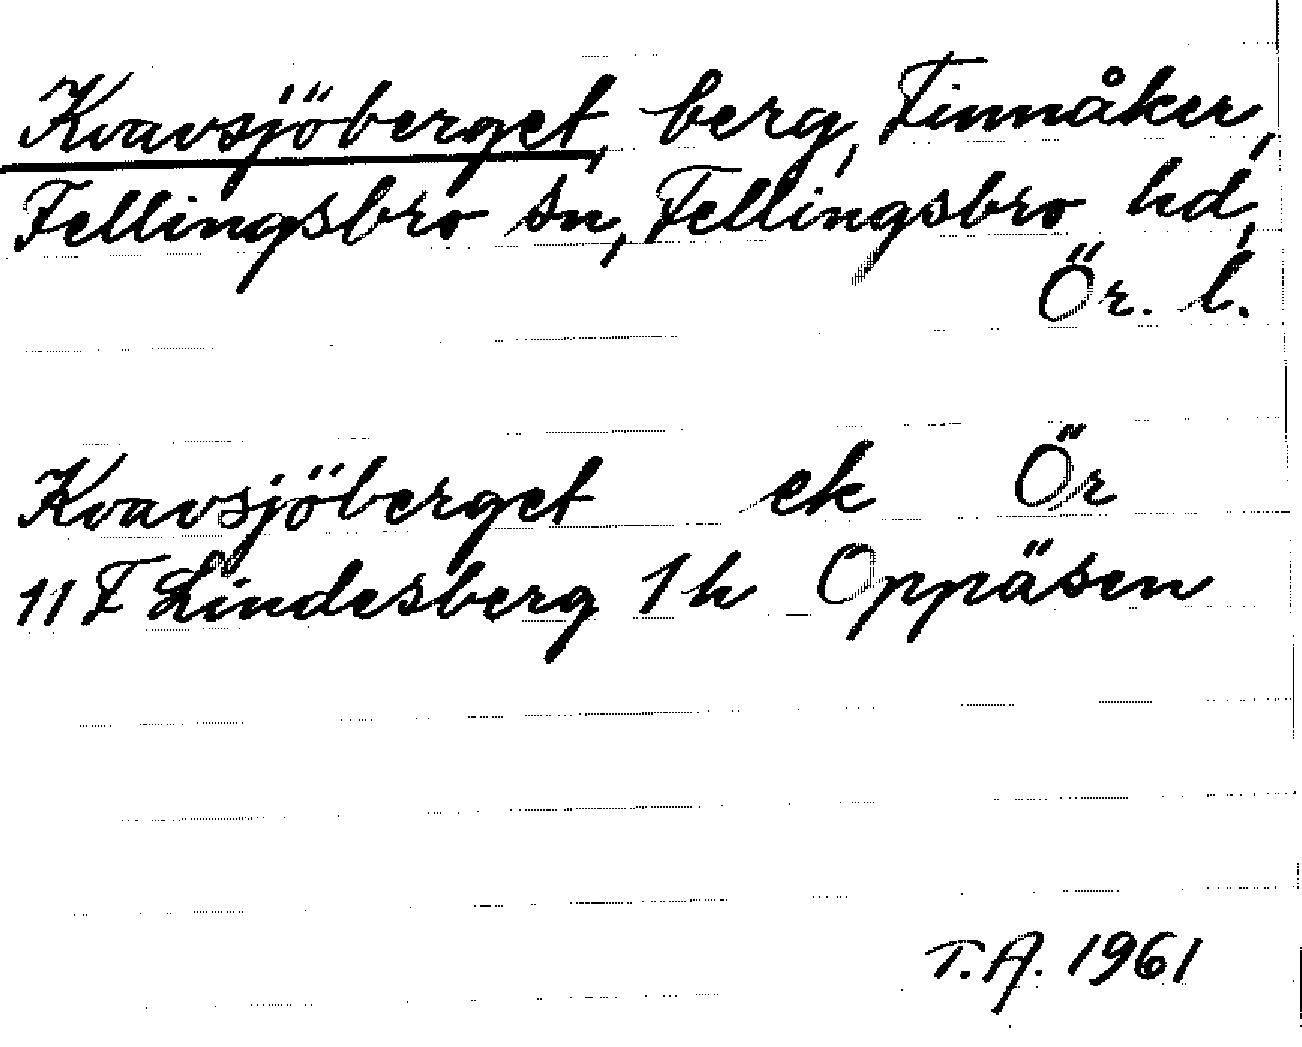 Kvavsjöberget, berg, Finnåker,
Fellingsbro sn, Fellingsbro hd,
Ör. l.
Kvavsjöberget ek Ör
11 F Lindesberg 1 h Oppäsen
T.A. 1961